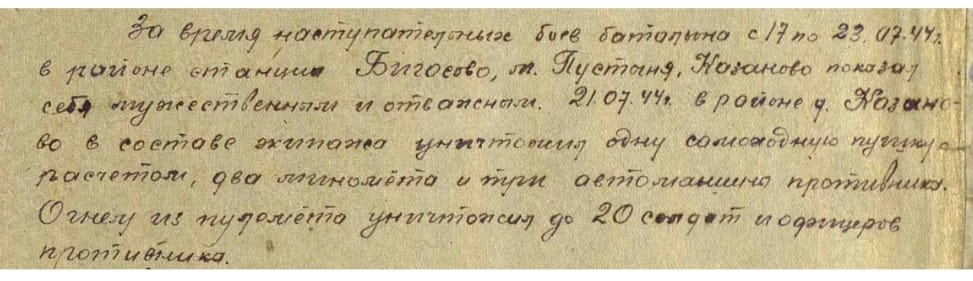 За время наступательных боев батальона с 17 по 23.07.44г.
в районе станции Бигосово, м. Пустыня, Казаново показал
себя мужественным и отважным. 21.07.44г. в районе д. Казано-
во в составе экипажа уничтожил одну самоходную пушку с
расчетом, два миномёта и три автомашины противника.
Огнем из пулемёта уничтожил до 20 солдат и офицеров
противника.